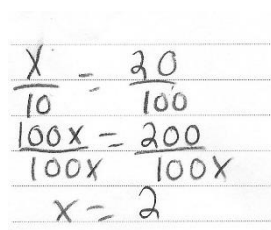 x/10 = 20/100
100x/100x = 200/100x
x = 2